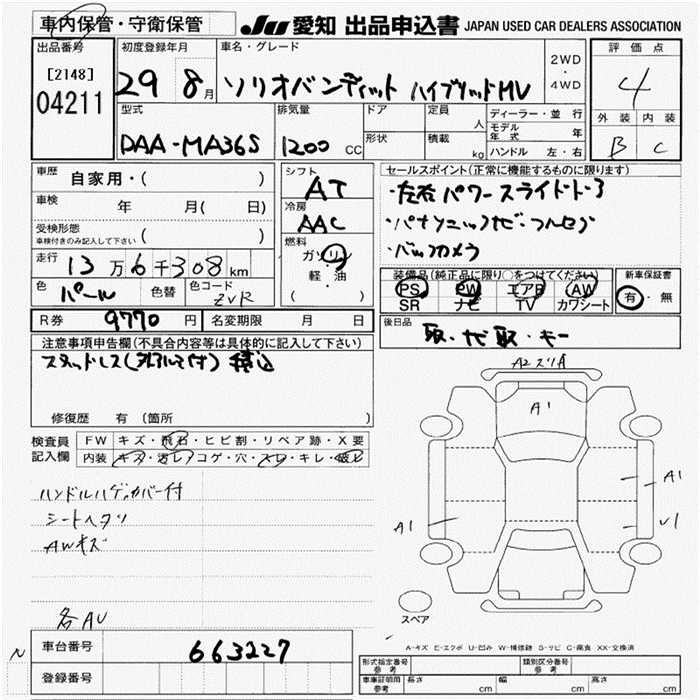 車内保管・守衛保管
JU 愛知 出品申込書 JAPAN USED CAR DEALERS ASSOCIATION
出品番号 初度登録年月 車名・グレード 2WD・4WD 評価点
[2148]
04211 29 8月 ソリオバンディット ハイブリッドMV 4
型式 排気量 ドア 定員 人 ディーラー・並行 外装 内装
モデル年式 年
DAA-MA36S 1200 CC 形状 積載 kg ハンドル 左・右 B C
車歴 自家用・( ) シフト AT セールスポイント(正常に機能するものに限ります)
車検 年 月( 日) 冷房 AAC
・左右パワースライドドア
受検形態 ( )
車検付きのみ記入して下さい
・パナソニックナビ・フルセグ
走行 13万6千308km 燃料 ガソリン・軽・油 ( )
・バックカメラ
色 パール 色替 色コード ZVR
装備品(純正品に限り○をつけてください) 新車保証書
PS PW エアB AW 有・無
SR ナビ TV カワシート
R券 9770円 名変期限 月 日
後日品 取・ナビ取・キー
注意事項申告欄(不具合内容等は具体的に記入して下さい)
スタッドレス(外アルミ付)積込
修復歴 有 (箇所 )
A2 スリA
A1
検査員記入欄 FW キズ・飛石・ヒビ割・リペア跡・X要
内装 キズ・汚レ・コゲ・穴・スレ・キレ・破レ
ハンドルハゲ,カバー付
シートヘタリ
AWキズ
A1
A1
U1
各AU
スペア
A-キズ E-エクボ U-凹み W-補修跡 S-サビ C-腐食 XX-交換済
N 車台番号 663227
登録番号
形式指定番号 参考 類別区分番号 参考
車庫証明用 参考 長さ cm 幅 cm 高さ cm